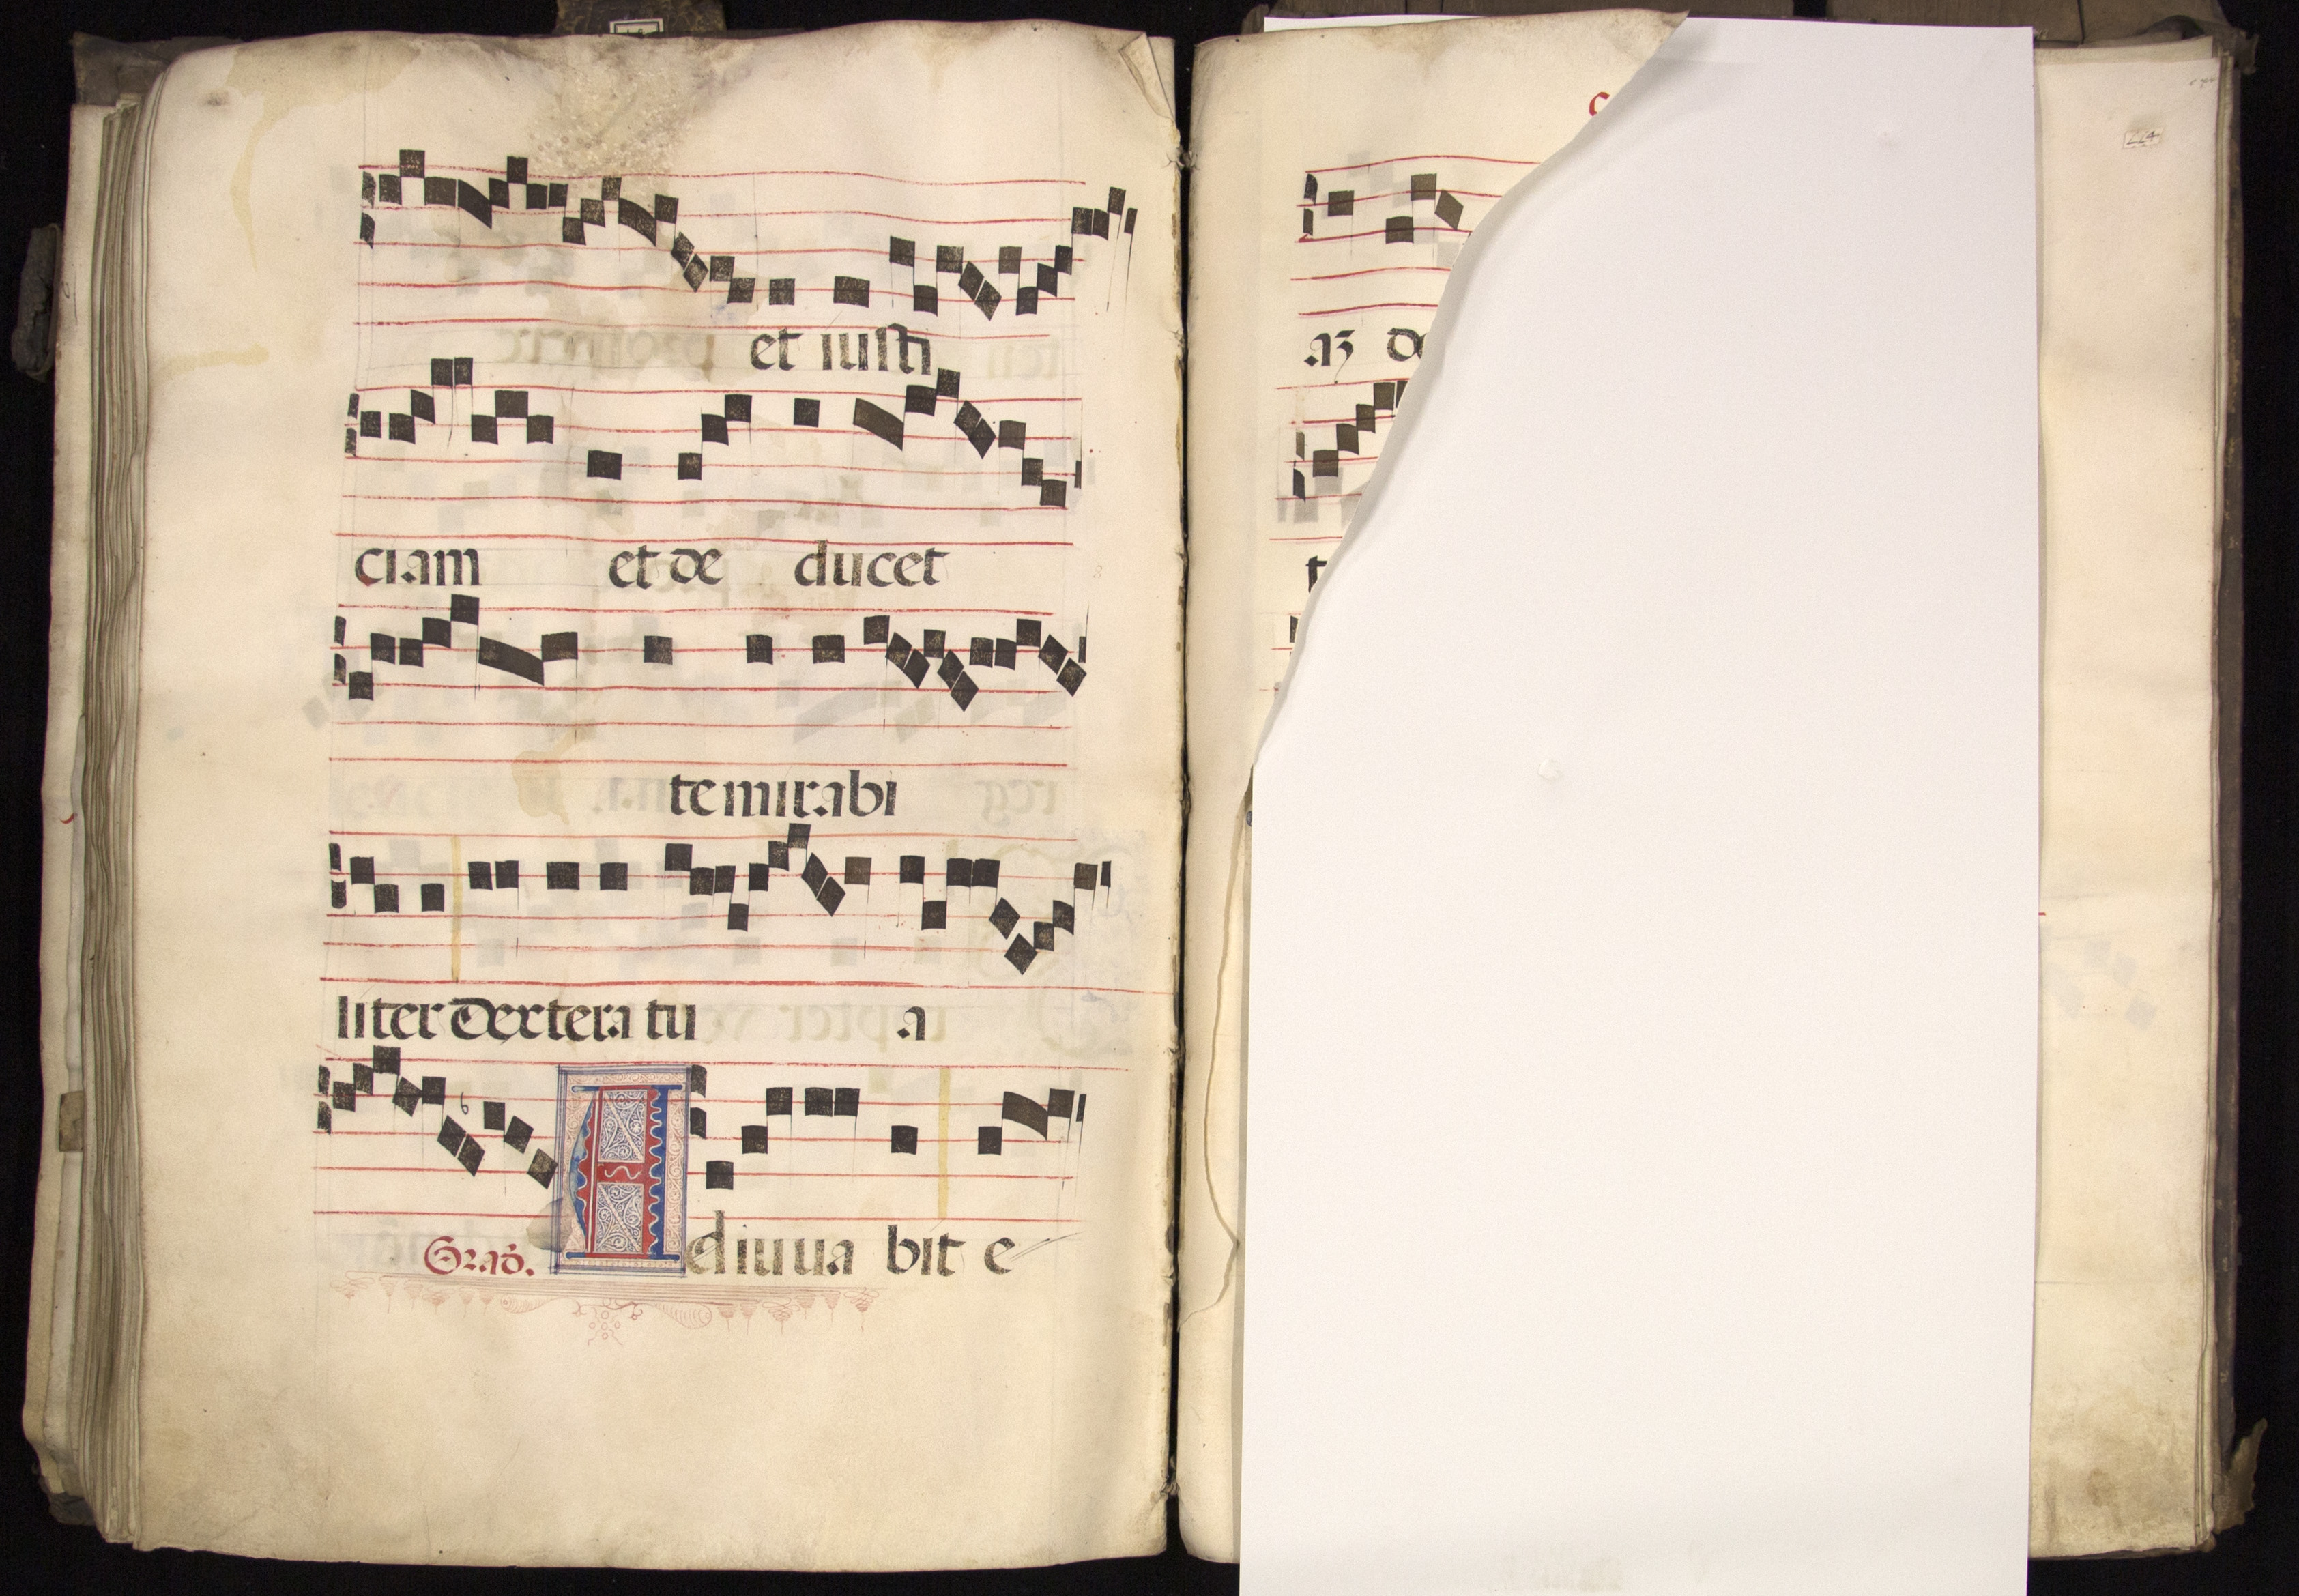 et iusti
ciam et de ducet
te mirabi
liter dextera tu a
Grad. Adiuua bit e